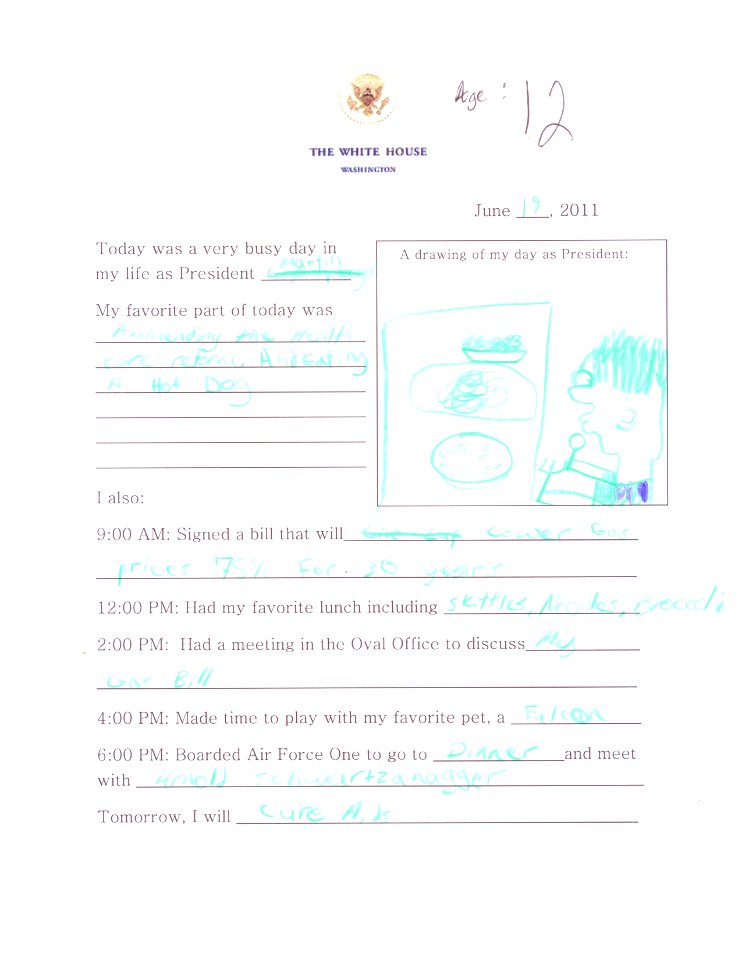 Age : 12
THE WHITE HOUSE
WASHINGTON
June 19, 2011
Today was a very busy day in
my life as President
My favorite part of today was
Ammending the Health
care reform, And Eating
A Hot Dog
A drawing of my day as President:
I also:
9:00 AM: Signed a bill that will Lower Gas
prices 75% For 30 years
12:00 PM: Had my favorite lunch including skittles, Noodles, Broccoli
2:00 PM: Had a meeting in the Oval Office to discuss My
Gas Bill
4:00 PM: Made time to play with my favorite pet, a Falcon
6:00 PM: Boarded Air Force One to go to Dinner and meet
with Arnold Schwartzanagger
Tomorrow, I will cure Aids